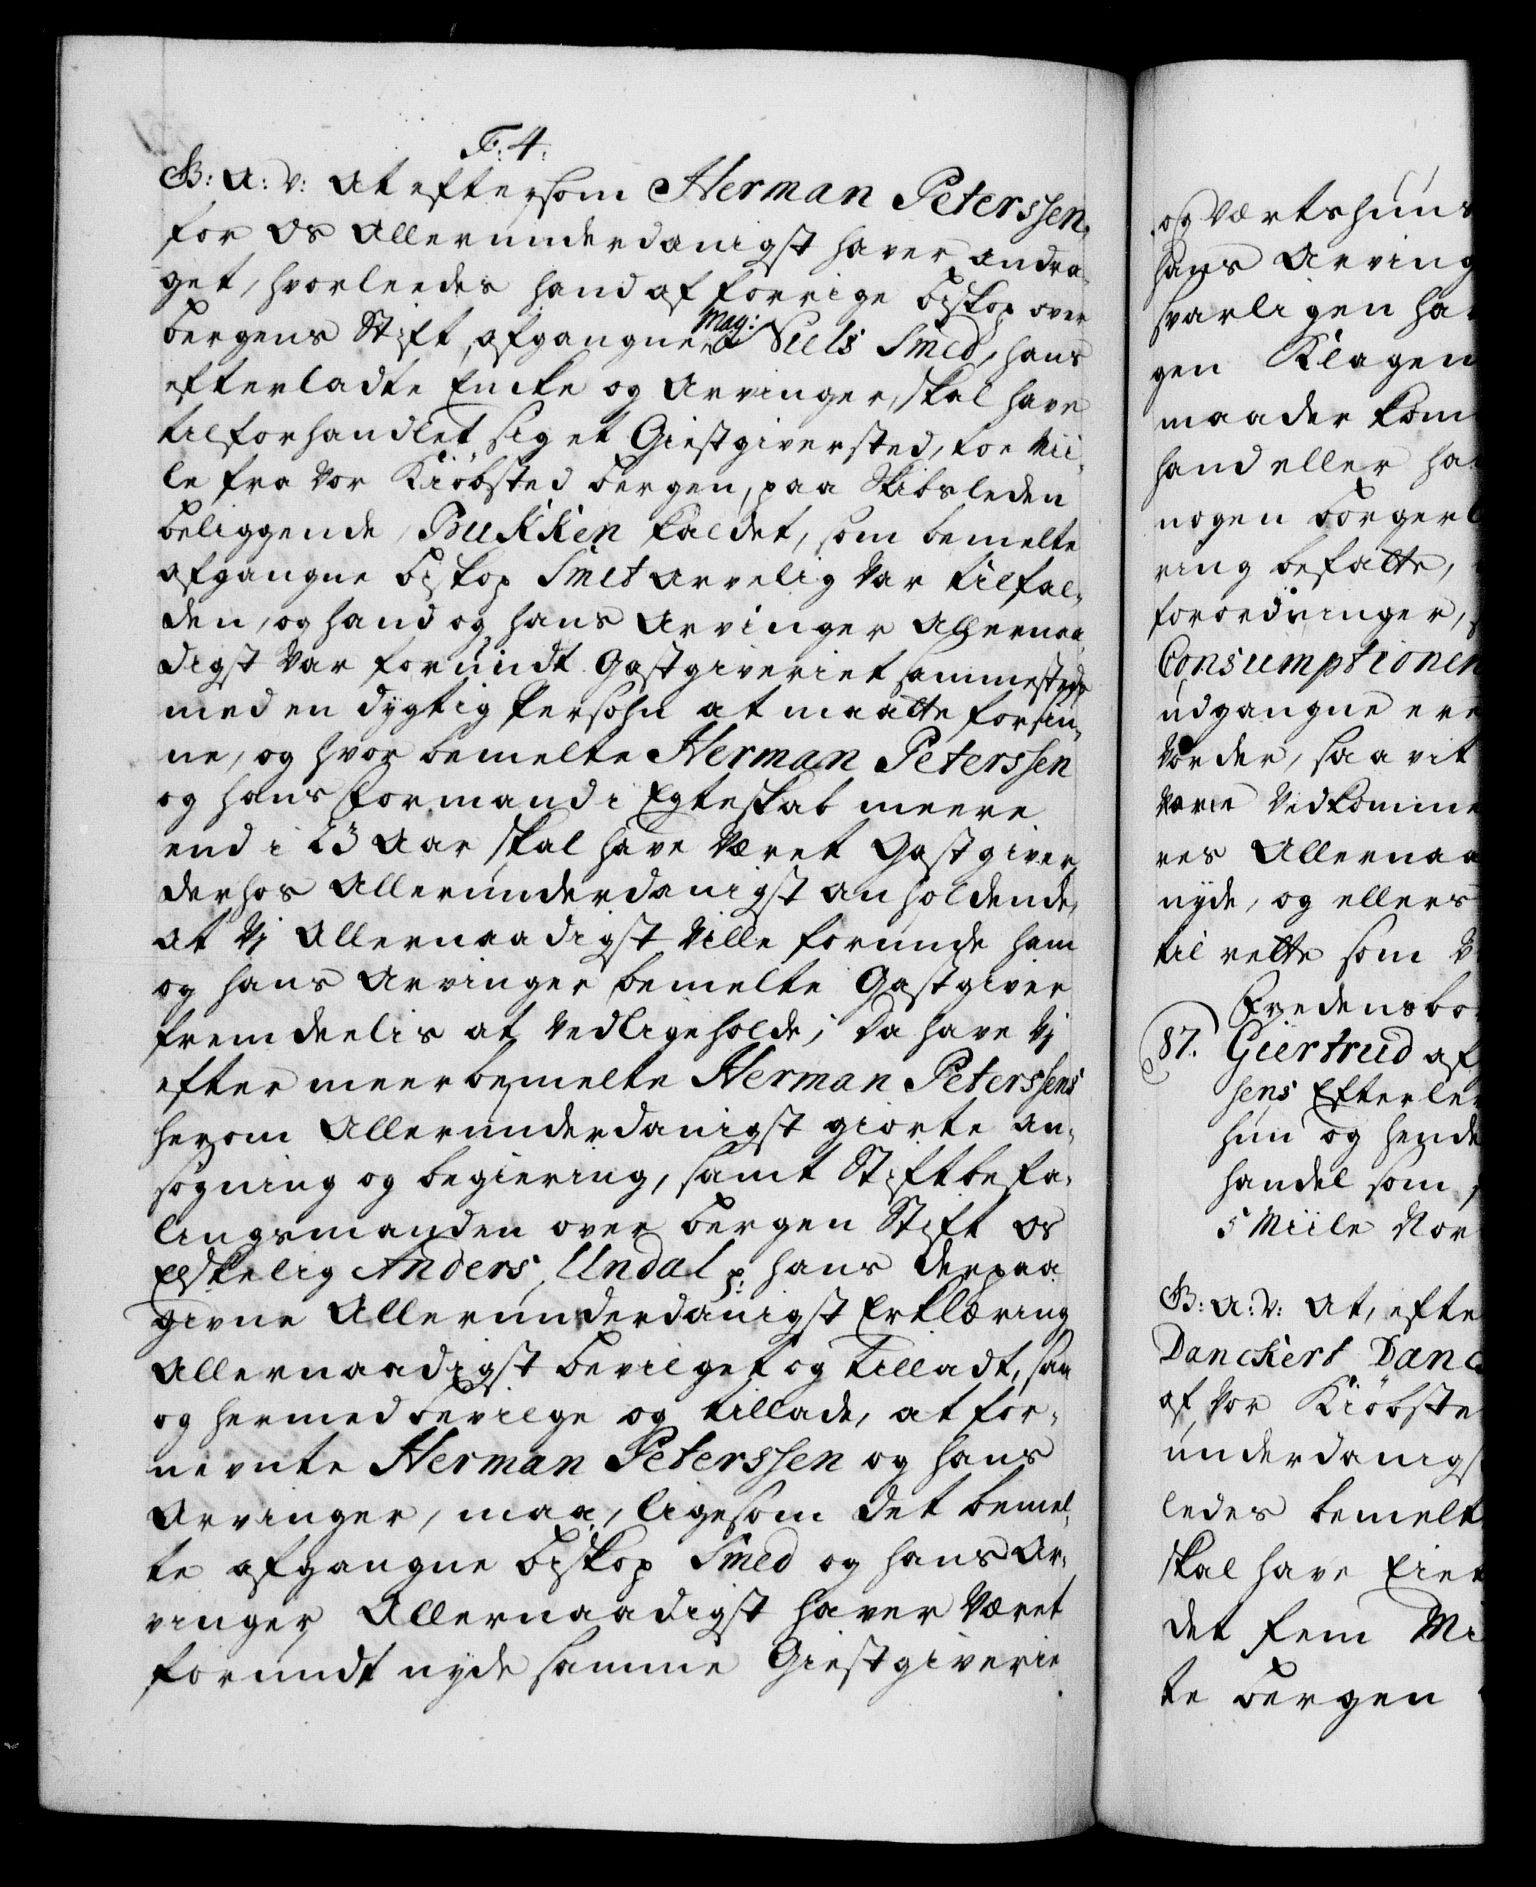 F: 4:
G: A: V: At eftersom Herman Peterssen,
for Os Allerunderdanigst haver andra-
get, hvorleedes hand af forrige biskop over
bergens Stift, afgangne Mag: Niels Smed, hans
efterladte Encke og Arvinger, skal have
tilforhandlet sig et Giestgiversted, toe Mii-
le fra Vor Kiöbsted bergen, paa Skibsleden
beliggende, Bukken kaldet, som bemelte
afgangne biskop Smet arvelig var tilfal-
den, og hand og hans Arvinger Allernaa-
digst var forundt Gastgiveriet sammesteds
med en dygtig Persohn at maatte forsiu-
ne, og hvor bemelte Herman Peterssen
og hans Formand i Egteskab meere
end i 23 Aar skal have været Gastgiver,
derhos Allerunderdanigst anholdende,
at Vj Allernaadigst Ville forunde ham
og hans Arvinger bemelte Gastgiver
fremdeelis at Vedligeholde; Da have Vj
efter meerbemelte Herman Peterssens
herom Allerunderdanigst giorte An-
søgning og begiering, samt Stiftbefa-
lingsmanden over bergen Stift Os
Elskelig Anders Undal p: hans derpaa
givne Allerunderdanigst Erklæring
Allernaadigst bevilget og Tilladt, saa
og hermed bevilge og tillade, at for-
nevnte Herman Peterssen og hans
Arvinger, maa, ligesom det bemel-
te afgangne biskop Smed og hans Ar-
vinger Allernaadigst haver Været
forundt nyde samme Giestgiverie
og Værtshuus
hans Arving
svarligen ha
gen Klagen
maader kom
hand eller ha
nogen borgerl
ring befatte,
forordninger,
Consumptionen
udgangne ere
Vorder, saavit
Være Vidkomme
res Allernaa
nyde, og ellers
til rette som V
Fredensbor
87. Giertrud af
sens Efterle
hun og hende
handel som
5 Miile Nor
G: A: V: At, efte
Danckert Danc
af Vor Kiöbste
underdanigs
ledes bemelt
skal have Eiet
det fem Mi
te bergen